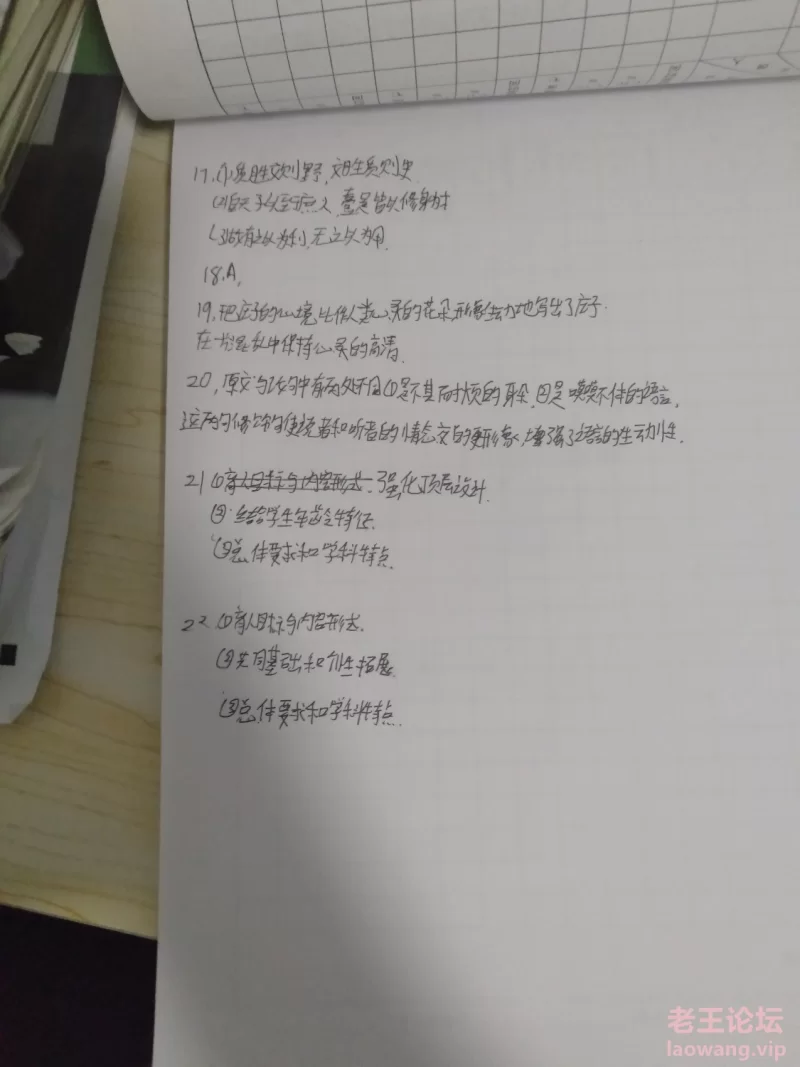 17.(1)质胜文则野,文胜质则史
(2)自天子以至于庶人,壹是皆以修身为本
(3)故有之以为利,无之以为用.
18.A.
19.把庄子的心境比作人类心灵的花朵,形象生动地写出了庄子
在混乱中保持心灵的高清.
20,原文句改句中有两处不同①是不其而烦的耳朵,②是喋喋不休的语言,
这两句修饰句使读者和听者的情态交的更形象,增强了语言的生动性.
21①育人目标与内容形式.强化顶层设计
②.结合学生年龄特征.
③总体要求和学科特点.
22①育人目标与内容形式.
②共同基础和个性拓展.
③总体要求和学科特点.
老王论坛
laowang.vip